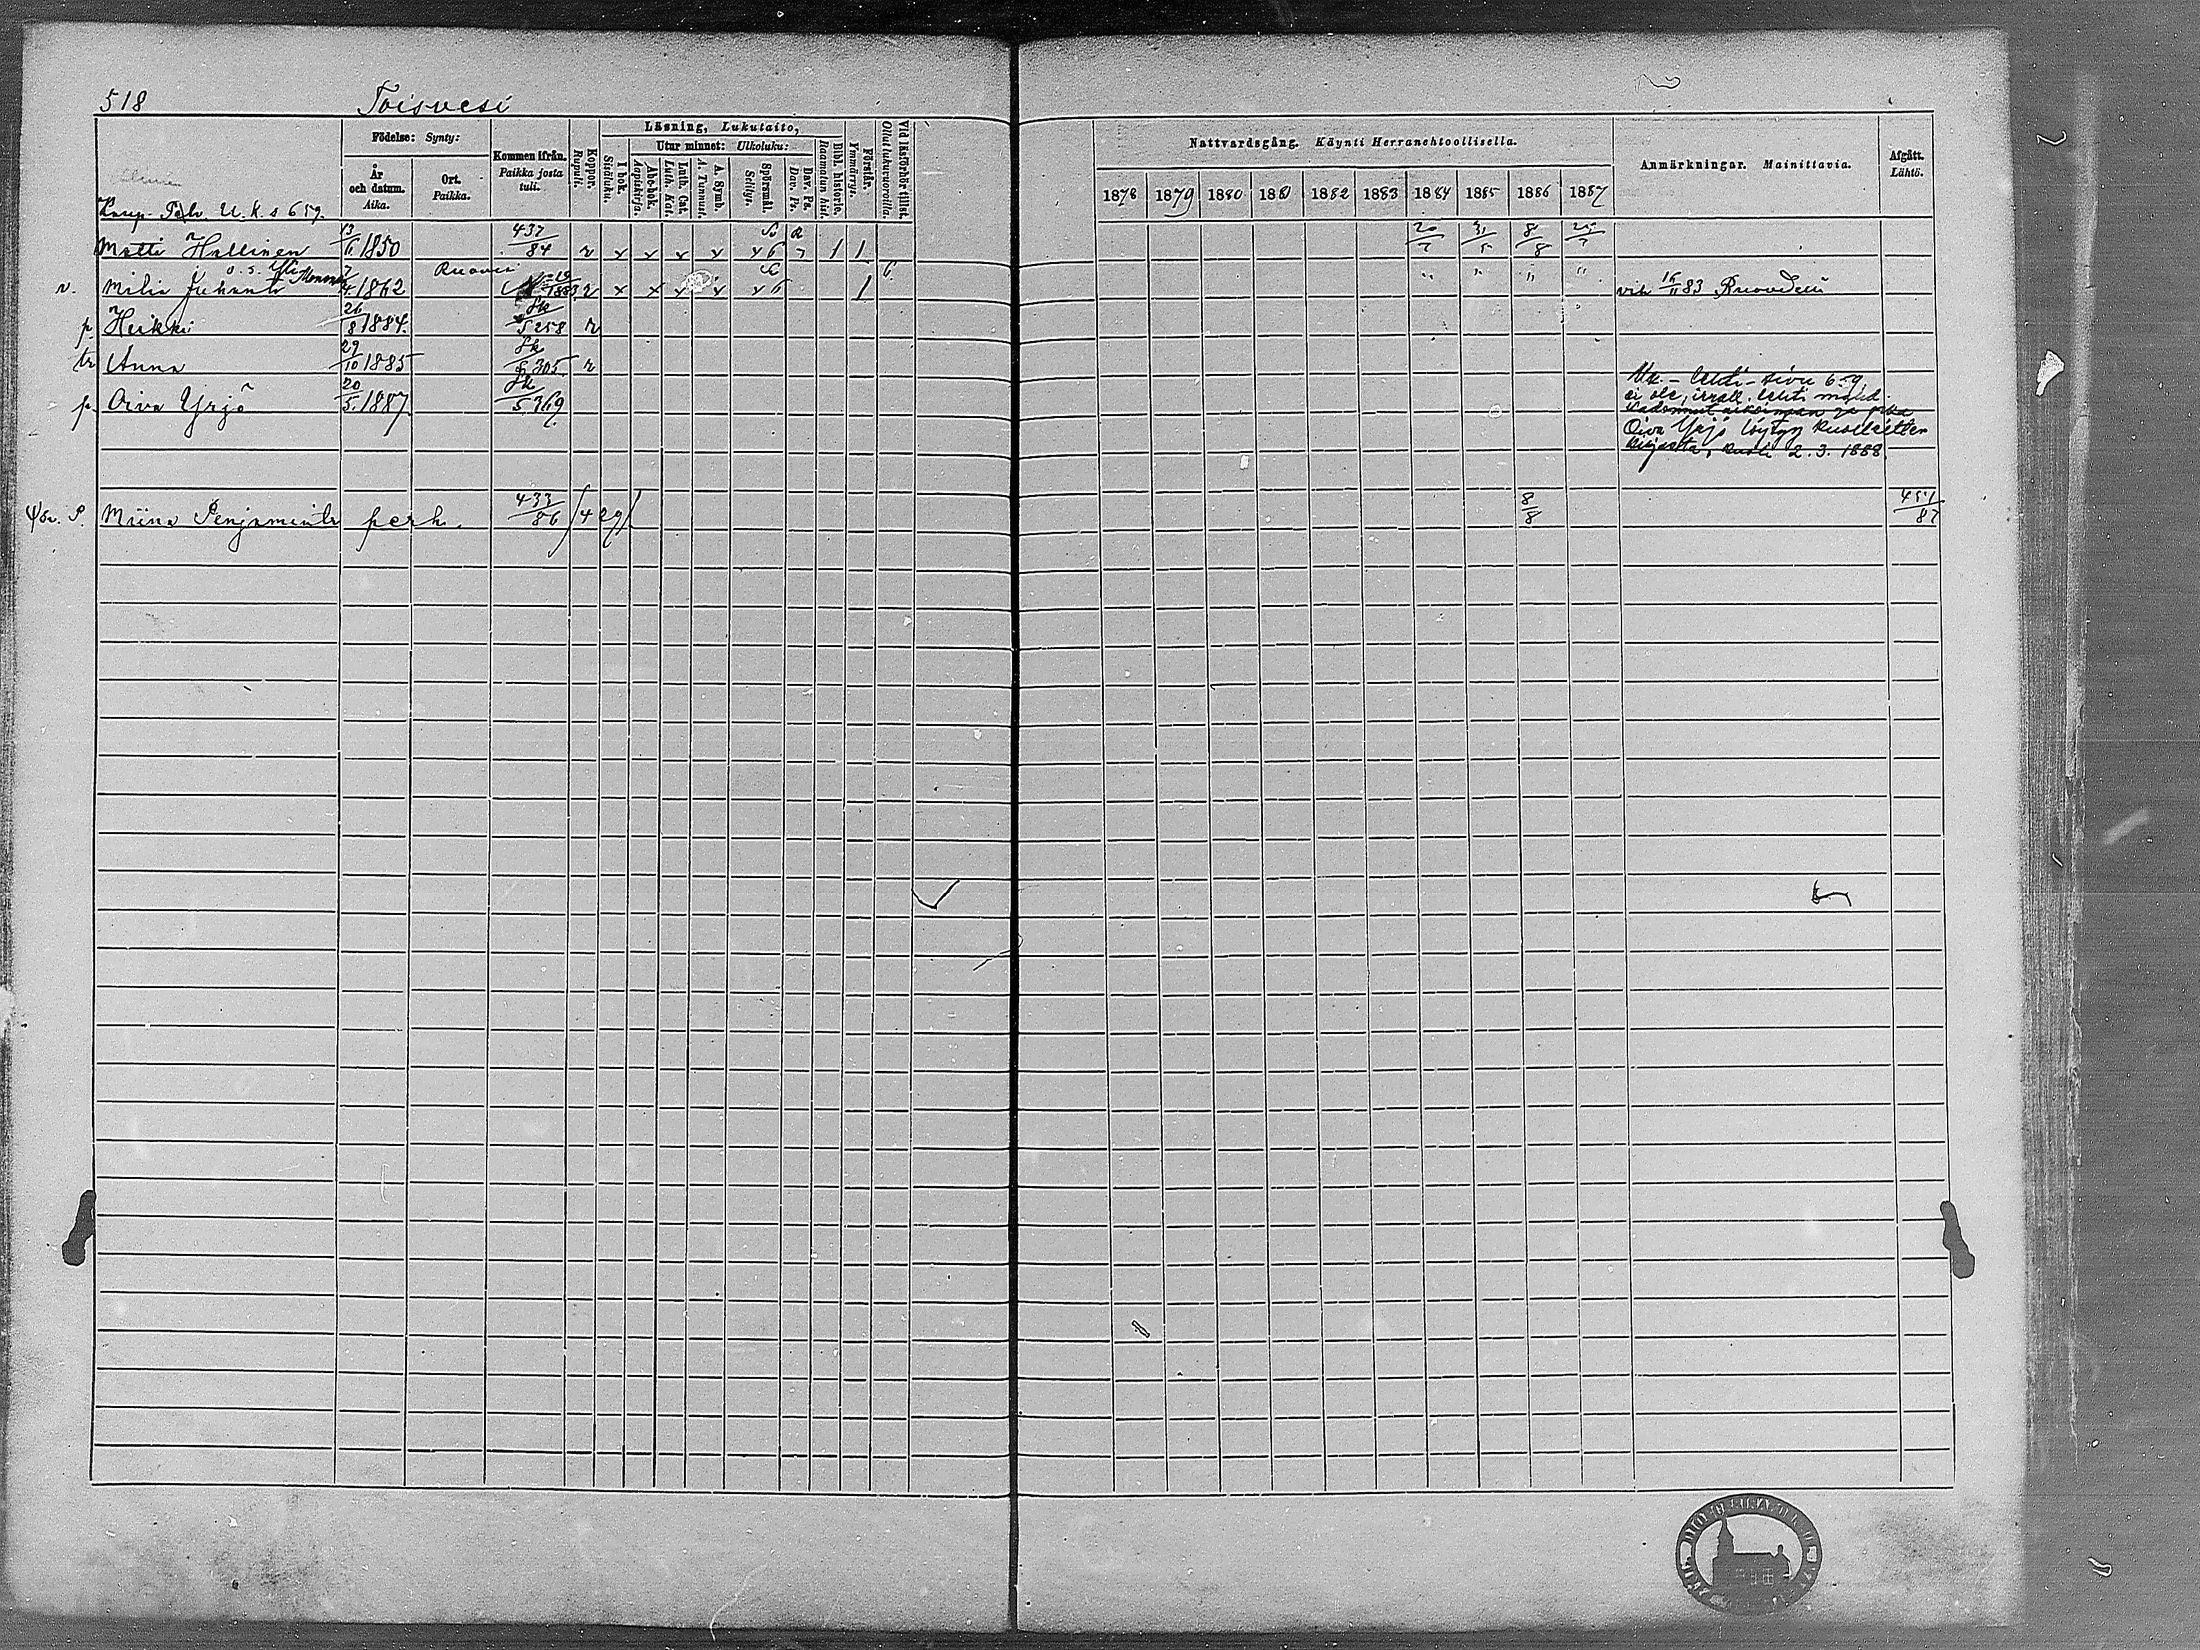 518 Toisvesi
Födelse: Synty:
År och datum. Aika.
Ort. Paikka.
Kommen ifrån. Paikka josta tuli.
Koppor. Rupuli.
Läsning, Lukutaito,
I bok. Sisäluku.
Utur minnet: Ulkoluku:
Abc-bok. Aapiskirja.
Luth. Cat. Luth. Kat.
A. Symb. A. Tunnust.
Spörsmål. Selitys.
Dav. Ps. Dav. Ps.
Bibl. historie. Raamatun hist.
Förstår. Ymmärrys.
Vid läsförhör tillst. Ollut lukuvuorolla.
Nattvardsgång. Käynti Herranehtoollisella.
1878 1879 1880 1881 1882 1883 1884 1885 1886 1887
Anmärkningar. Mainittavia.
Afgått. Lähtö.
U. k. s 659.
Matti Hallinen 13/6 1850 437/84 r x x x x x 6 7 1 1 20/7 31/5 8/8 25/7
v. Milia Juhant. 7/4 1862 Ruovesi 1883 r x x x x x 6 1 6 " " " " vih 16/11 83 Ruovedellä
p. Heikki 26/8 1884. Sk 5 258 r
tr Anna 29/10 1885 Sk 305 r
p. Oiva Yrjö 20/5. 1887 Sk 5 369.
Uk. - lehti - sivu 659
ei ole, irrall. lehti
kadonnut aikoinaan ja
Oiva Yrjö löytyy kuolleitten
kirjasta, kuoli 2.3.1888.
Miina Penjamintr perh. 433/86 /429/ 8/8 451/87